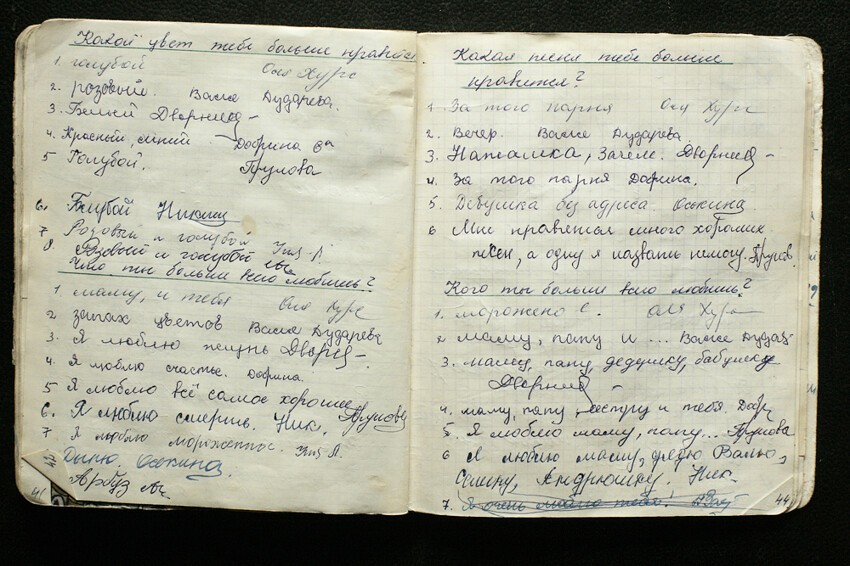 Какой цвет тебе больше нравится
1. голубой Оля Хурс
2. розовый. Валя Дударева.
3. Белый Дворнец
4. Красный, синий Дофрина
5 Голубой. Прулова
6. Голубой Никиш
7 Розовый и голубой
8. Розовый и голубой
Что ты больше всего любишь?
1. маму, и тебя Оля Хурс
2 запах цветов Валя Дударева
3. Я люблю жизнь Дворец
4. Я люблю счастье. Дофрина.
5 Я люблю всё самое хорошее
6. Я люблю смерть. Ник. Прулова
7 Я люблю мороженное.
Дыню Оськина.
Арбуз
41
Какая песня тебе больше
нравится?
1 За того парня Оля Хурс
2. Вечер. Валя Дударева
3. Наташка, Зачем. Дворнец
4. За того парня Дофрина.
5. Девушка без адреса. Оськина
6 Мне нравятся много хороших
песен, а одну я назвать немогу. Прулов.
Кого ты больше всего любишь?
1. морожено е. Оля Хурс
2 Маму, папу и ... Валя Дудар
3. маму, папу, дедушку, бабушку
Дворнец
4. маму, папу, сестру и тебя. Дофр
5. Я люблю маму, папу... Прулова
6 Я люблю маму, дядю Валю,
Андрюшку. Ник.
7. Я очень люблю тебя!
44